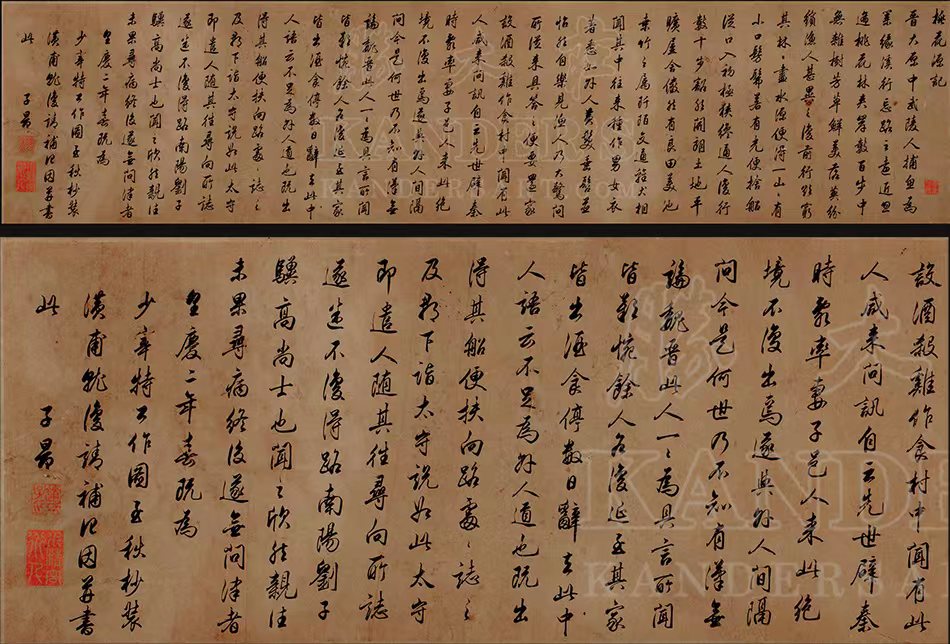 桃花源記
晉太原中武陵人捕魚為
業緣溪行忘路之遠近忽
逢桃花林夾岸數百步中
無雜樹芳草鮮美落英紛
繽漁人甚異之復前行欲窮
其林林盡水源便得一山山有
小口髣髴若有光便捨船
從口入初極狹纔通人復行
數十步豁然開朗土地平
曠屋舍儼然有良田美池
桑竹之屬阡陌交通雞犬相
聞其中往來種作男女衣
著悉如外人黃髮垂髫並
怡然自樂見漁人乃大驚問
所從來具答之便要還家
設酒殺雞作食村中聞有此
人咸來問訊自云先世避秦
時亂率妻子邑人來此絕
境不復出焉遂與外人間隔
問今是何世乃不知有漢無
論魏晉此人一一為具言所聞
皆歎惋餘人各復延至其家
皆出酒食停數日辭去此中
人語云不足為外人道也既出
得其船便扶向路處處誌之
及郡下詣太守說如此太守
即遣人隨其往尋向所誌
遂迷不復得路南陽劉子
驥高尚士也聞之欣然親往
未果尋病終後遂無問津者
皇慶二年春既為
少宰特公作圖至秋杪裝
潢甫就復請補記因并書
此
子昂
設酒殺雞作食村中聞有此
人咸來問訊自云先世避秦
時亂率妻子邑人來此絕
境不復出焉遂與外人間隔
問今是何世乃不知有漢無
論魏晉此人一一為具言所聞
皆歎惋餘人各復延至其家
皆出酒食停數日辭去此中
人語云不足為外人道也既出
得其船便扶向路處處誌之
及郡下詣太守說如此太守
即遣人隨其往尋向所誌
遂迷不復得路南陽劉子
驥高尚士也聞之欣然親往
未果尋病終後遂無問津者
皇慶二年春既為
少宰特公作圖至秋杪裝
潢甫就復請補記因并書
此
子昂